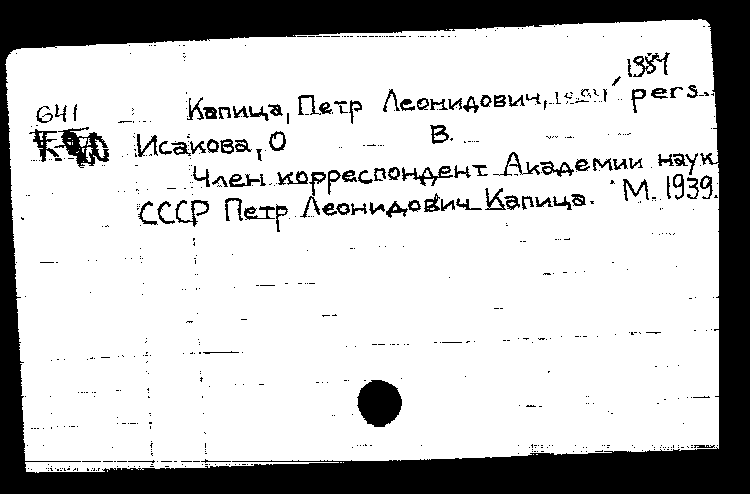 1984
641 Капица, Петр Леонидович, 1894 pers.
Исакова, О В.
Член корреспондент Академии наук
СССР Петр Леонидович Капица. М. 1939.